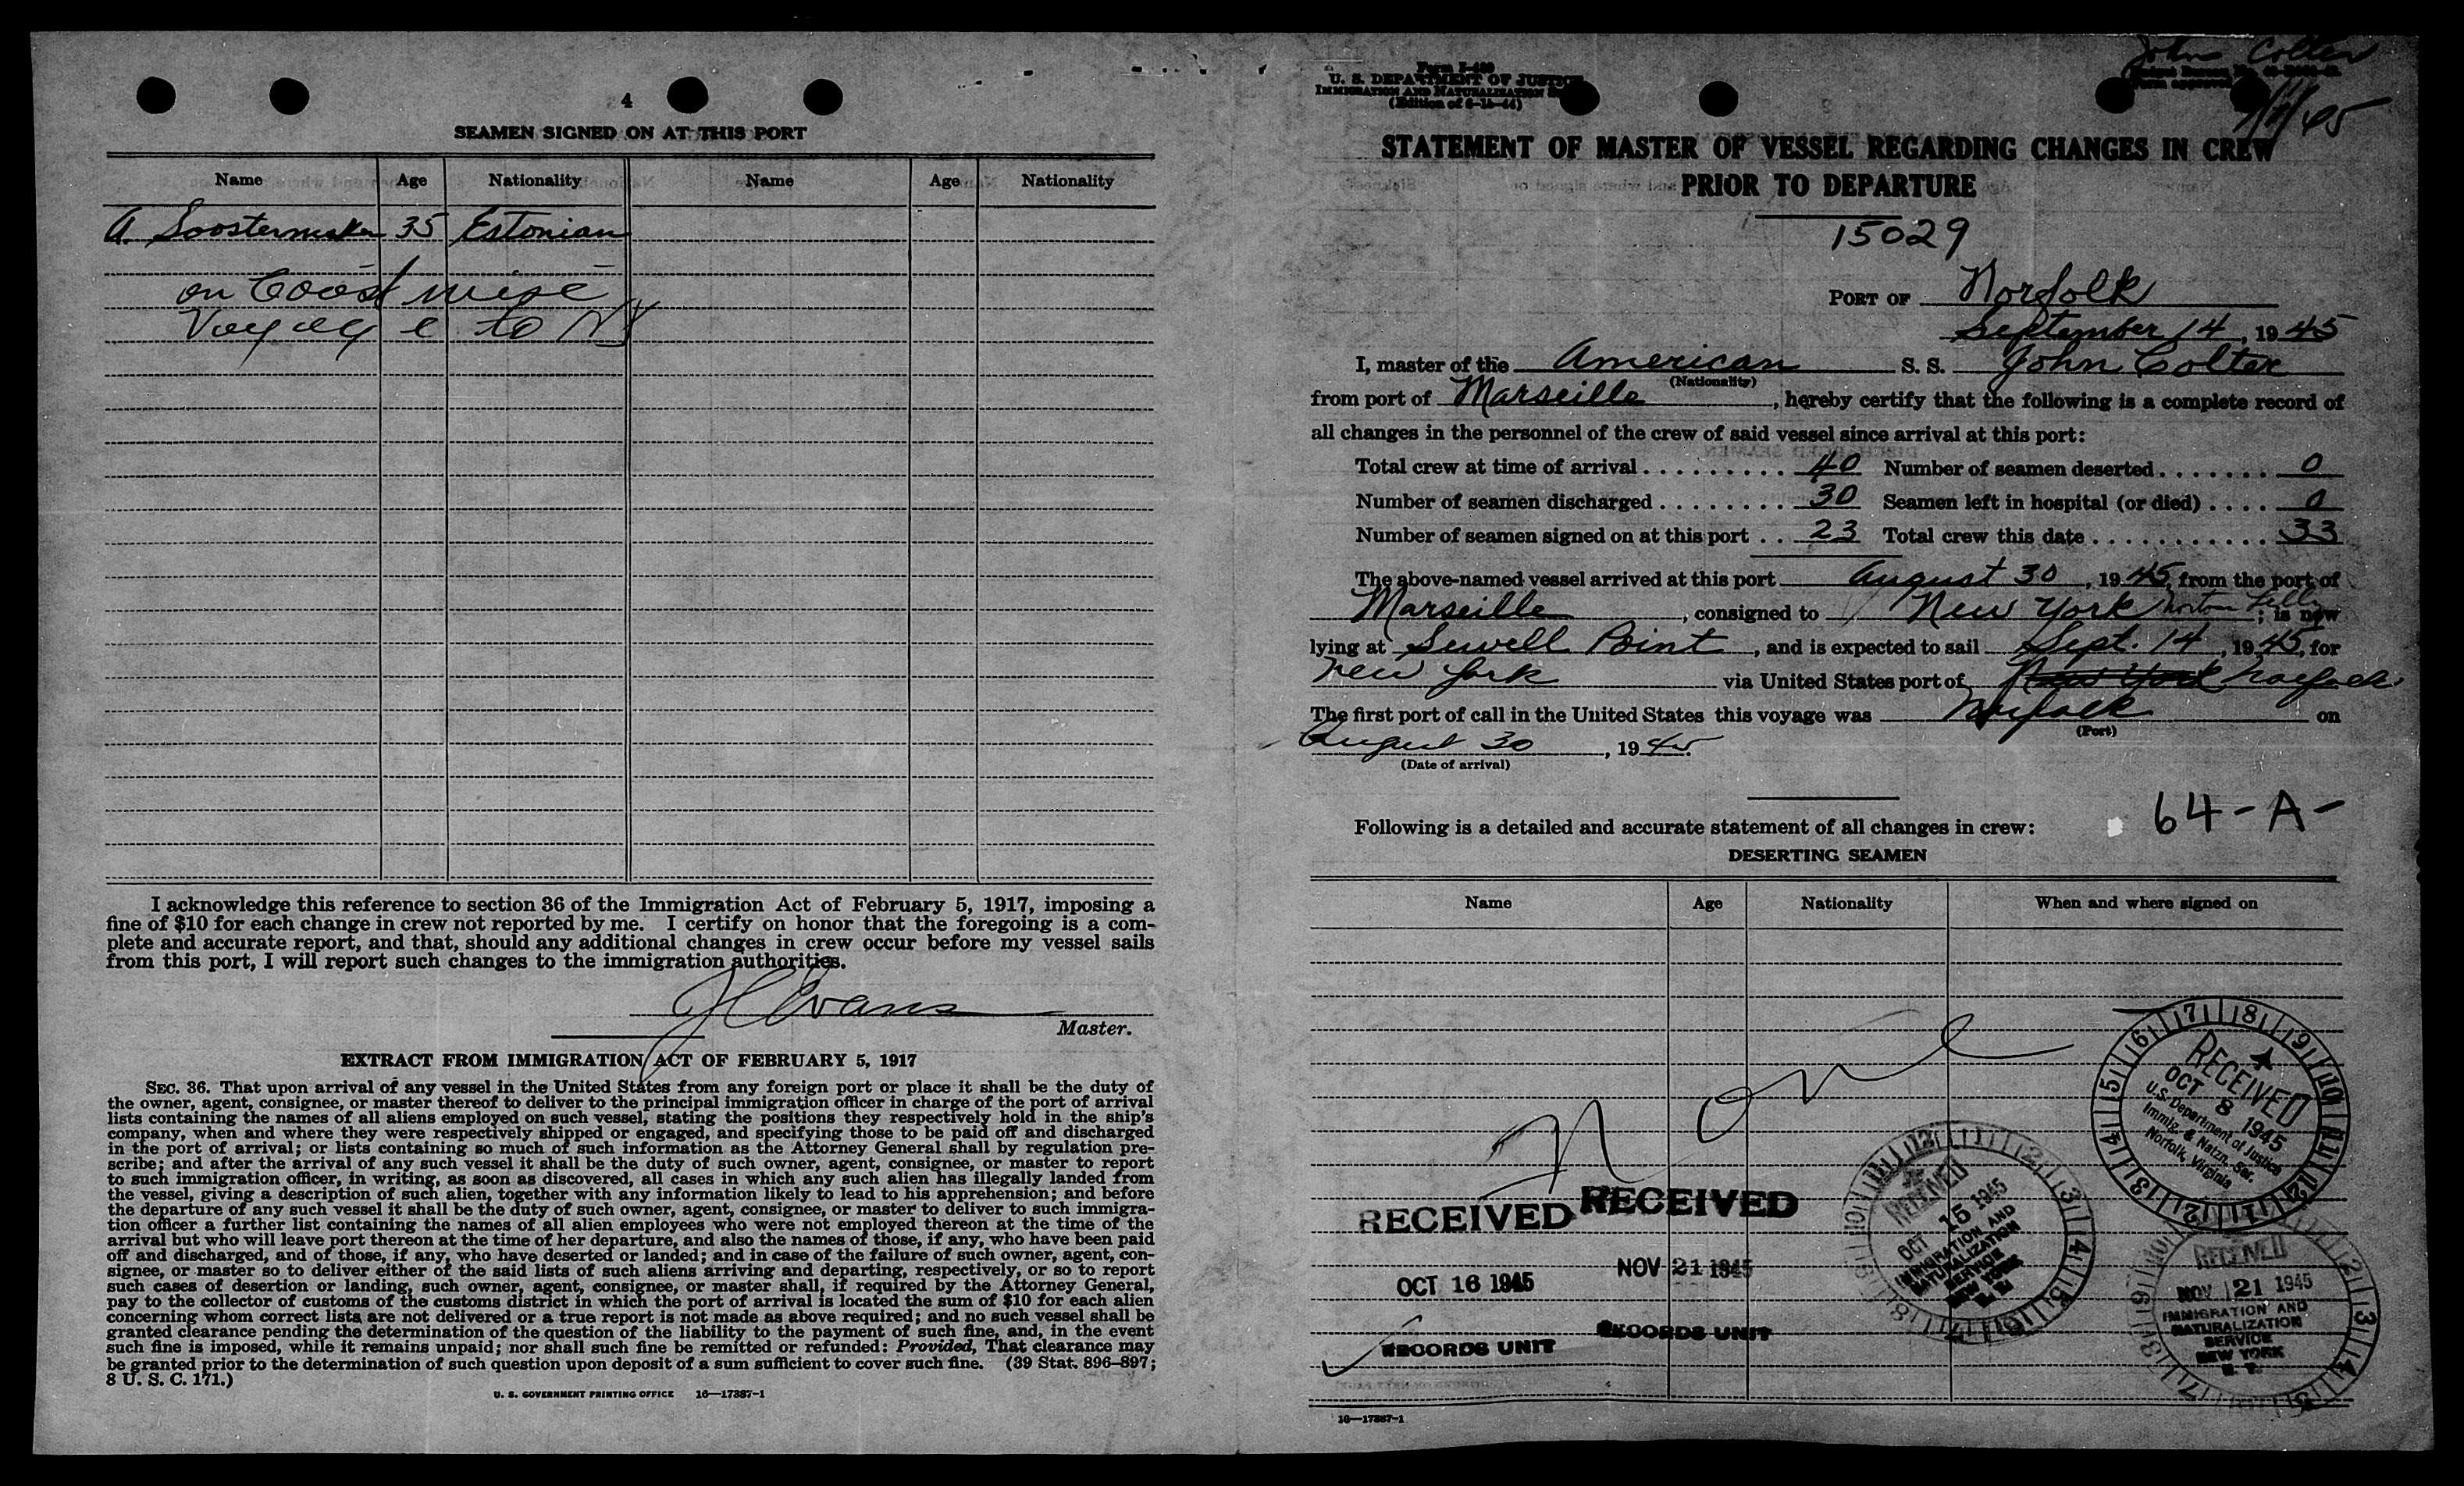 4
SEAMEN SIGNED ON AT THIS PORT
Name Age Nationality Name Age Nationality
A. Soostermaker 35 Estonian
on Coast wise
Voyage to NY
I acknowledge this reference to section 36 of the Immigration Act of February 5, 1917, imposing a
fine of $10 for each change in crew not reported by me. I certify on honor that the foregoing is a com-
plete and accurate report, and that, should any additional changes in crew occur before my vessel sails
from this port, I will report such changes to the immigration authorities.
J C Evans
Master.
EXTRACT FROM IMMIGRATION ACT OF FEBRUARY 5, 1917
SEC. 36. That upon arrival of any vessel in the United States from any foreign port or place it shall be the duty of
the owner, agent, consignee, or master thereof to deliver to the principal immigration officer in charge of the port of arrival
lists containing the names of all aliens employed on such vessel, stating the positions they respectively hold in the ship's
company, when and where they were respectively shipped or engaged, and specifying those to be paid off and discharged
in the port of arrival; or lists containing so much of such information as the Attorney General shall by regulation pre-
scribe; and after the arrival of any such vessel it shall be the duty of such owner, agent, consignee, or master to report
to such immigration officer, in writing, as soon as discovered, all cases in which any such alien has illegally landed from
the vessel, giving a description of such alien, together with any information likely to lead to his apprehension; and before
the departure of any such vessel it shall be the duty of such owner, agent, consignee, or master to deliver to such immigra-
tion officer a further list containing the names of all alien employees who were not employed thereon at the time of the
arrival but who will leave port thereon at the time of her departure, and also the names of those, if any, who have been paid
off and discharged, and of those, if any, who have deserted or landed; and in case of the failure of such owner, agent, con-
signee, or master so to deliver either of the said lists of such aliens arriving and departing, respectively, or so to report
such cases of desertion or landing, such owner, agent, consignee, or master shall, if required by the Attorney General,
pay to the collector of customs of the customs district in which the port of arrival is located the sum of $10 for each alien
concerning whom correct lists are not delivered or a true report is not made as above required; and no such vessel shall be
granted clearance pending the determination of the question of the liability to the payment of such fine, and, in the event
such fine is imposed, while it remains unpaid; nor shall such fine be remitted or refunded: Provided, That clearance may
be granted prior to the determination of such question upon deposit of a sum sufficient to cover such fine. (39 Stat. 896–897;
8 U. S. C. 171.)
U. S. GOVERNMENT PRINTING OFFICE 16—17387-1
John Colter
U. S. DEPARTMENT OF JUSTICE
IMMIGRATION AND NATURALIZATION
(Edition of 6-15-44)
STATEMENT OF MASTER OF VESSEL REGARDING CHANGES IN CREW
PRIOR TO DEPARTURE
15029
PORT OF Norfolk
September 14, 1945
I, master of the American S. S. John Colter
(Nationality)
from port of Marseille, hereby certify that the following is a complete record of
all changes in the personnel of the crew of said vessel since arrival at this port:
Total crew at time of arrival 40 Number of seamen deserted 0
Number of seamen discharged 30 Seamen left in hospital (or died) 0
Number of seamen signed on at this port 23 Total crew this date 33
The above-named vessel arrived at this port August 30, 1945, from the port of
Marseille, consigned to New York Norton Lilly; is now
lying at Sewell Point, and is expected to sail Sept. 14, 1945, for
New York via United States port of New York Norfolk
The first port of call in the United States this voyage was Norfolk on
(Port)
August 30, 1945.
(Date of arrival)
64-A-
Following is a detailed and accurate statement of all changes in crew:
DESERTING SEAMEN
Name Age Nationality When and where signed on
None
RECEIVED
OCT 8 1945
U.S. Department of Justice
Immig. & Natzn. Ser.
Norfolk, Virginia
RECEIVED
OCT 16 1945
RECORDS UNIT
RECEIVED
NOV 21 1945
RECORDS UNIT
RECEIVED
OCT 15 1945
IMMIGRATION AND
NATURALIZATION
SERVICE
NEW YORK
RECEIVED
NOV 21 1945
IMMIGRATION AND
NATURALIZATION
SERVICE
NEW YORK
N. Y.
16—17387-1